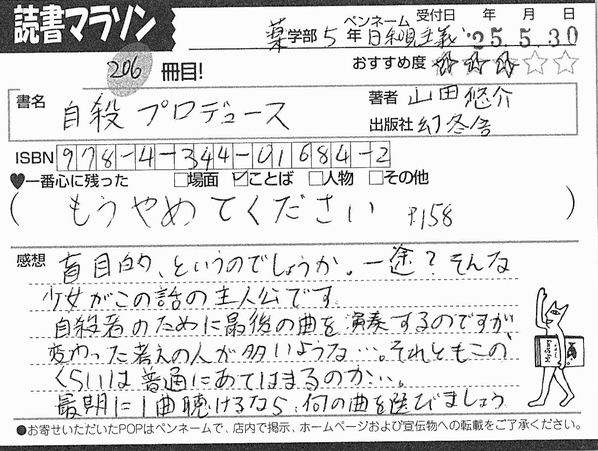 読書マラソン
ペンネーム 受付日 年 月 日
薬学部 5年 日和見主義 '25.5.30
206 冊目! おすすめ度 ★★★☆☆
書名 自殺プロデュース
著者 山田悠介
出版社 幻冬舎
ISBN 978-4-344-01684-2
♥一番心に残った □場面 ☑ことば □人物 □その他
(もうやめてください P158)
感想 盲目的、というのでしょうか。一途?そんな
少女がこの話の主人公です
自殺者のために最後の曲を演奏するのですが、
変わった考えの人が多いような…。それともこの
くらいは普通にあてはまるのか…。
最期に1曲聴けるなら、何の曲を選びましょう
●お寄せいただいたPOPはペンネームで、店内で掲示、ホームページおよび宣伝物への転載をご了承ください。